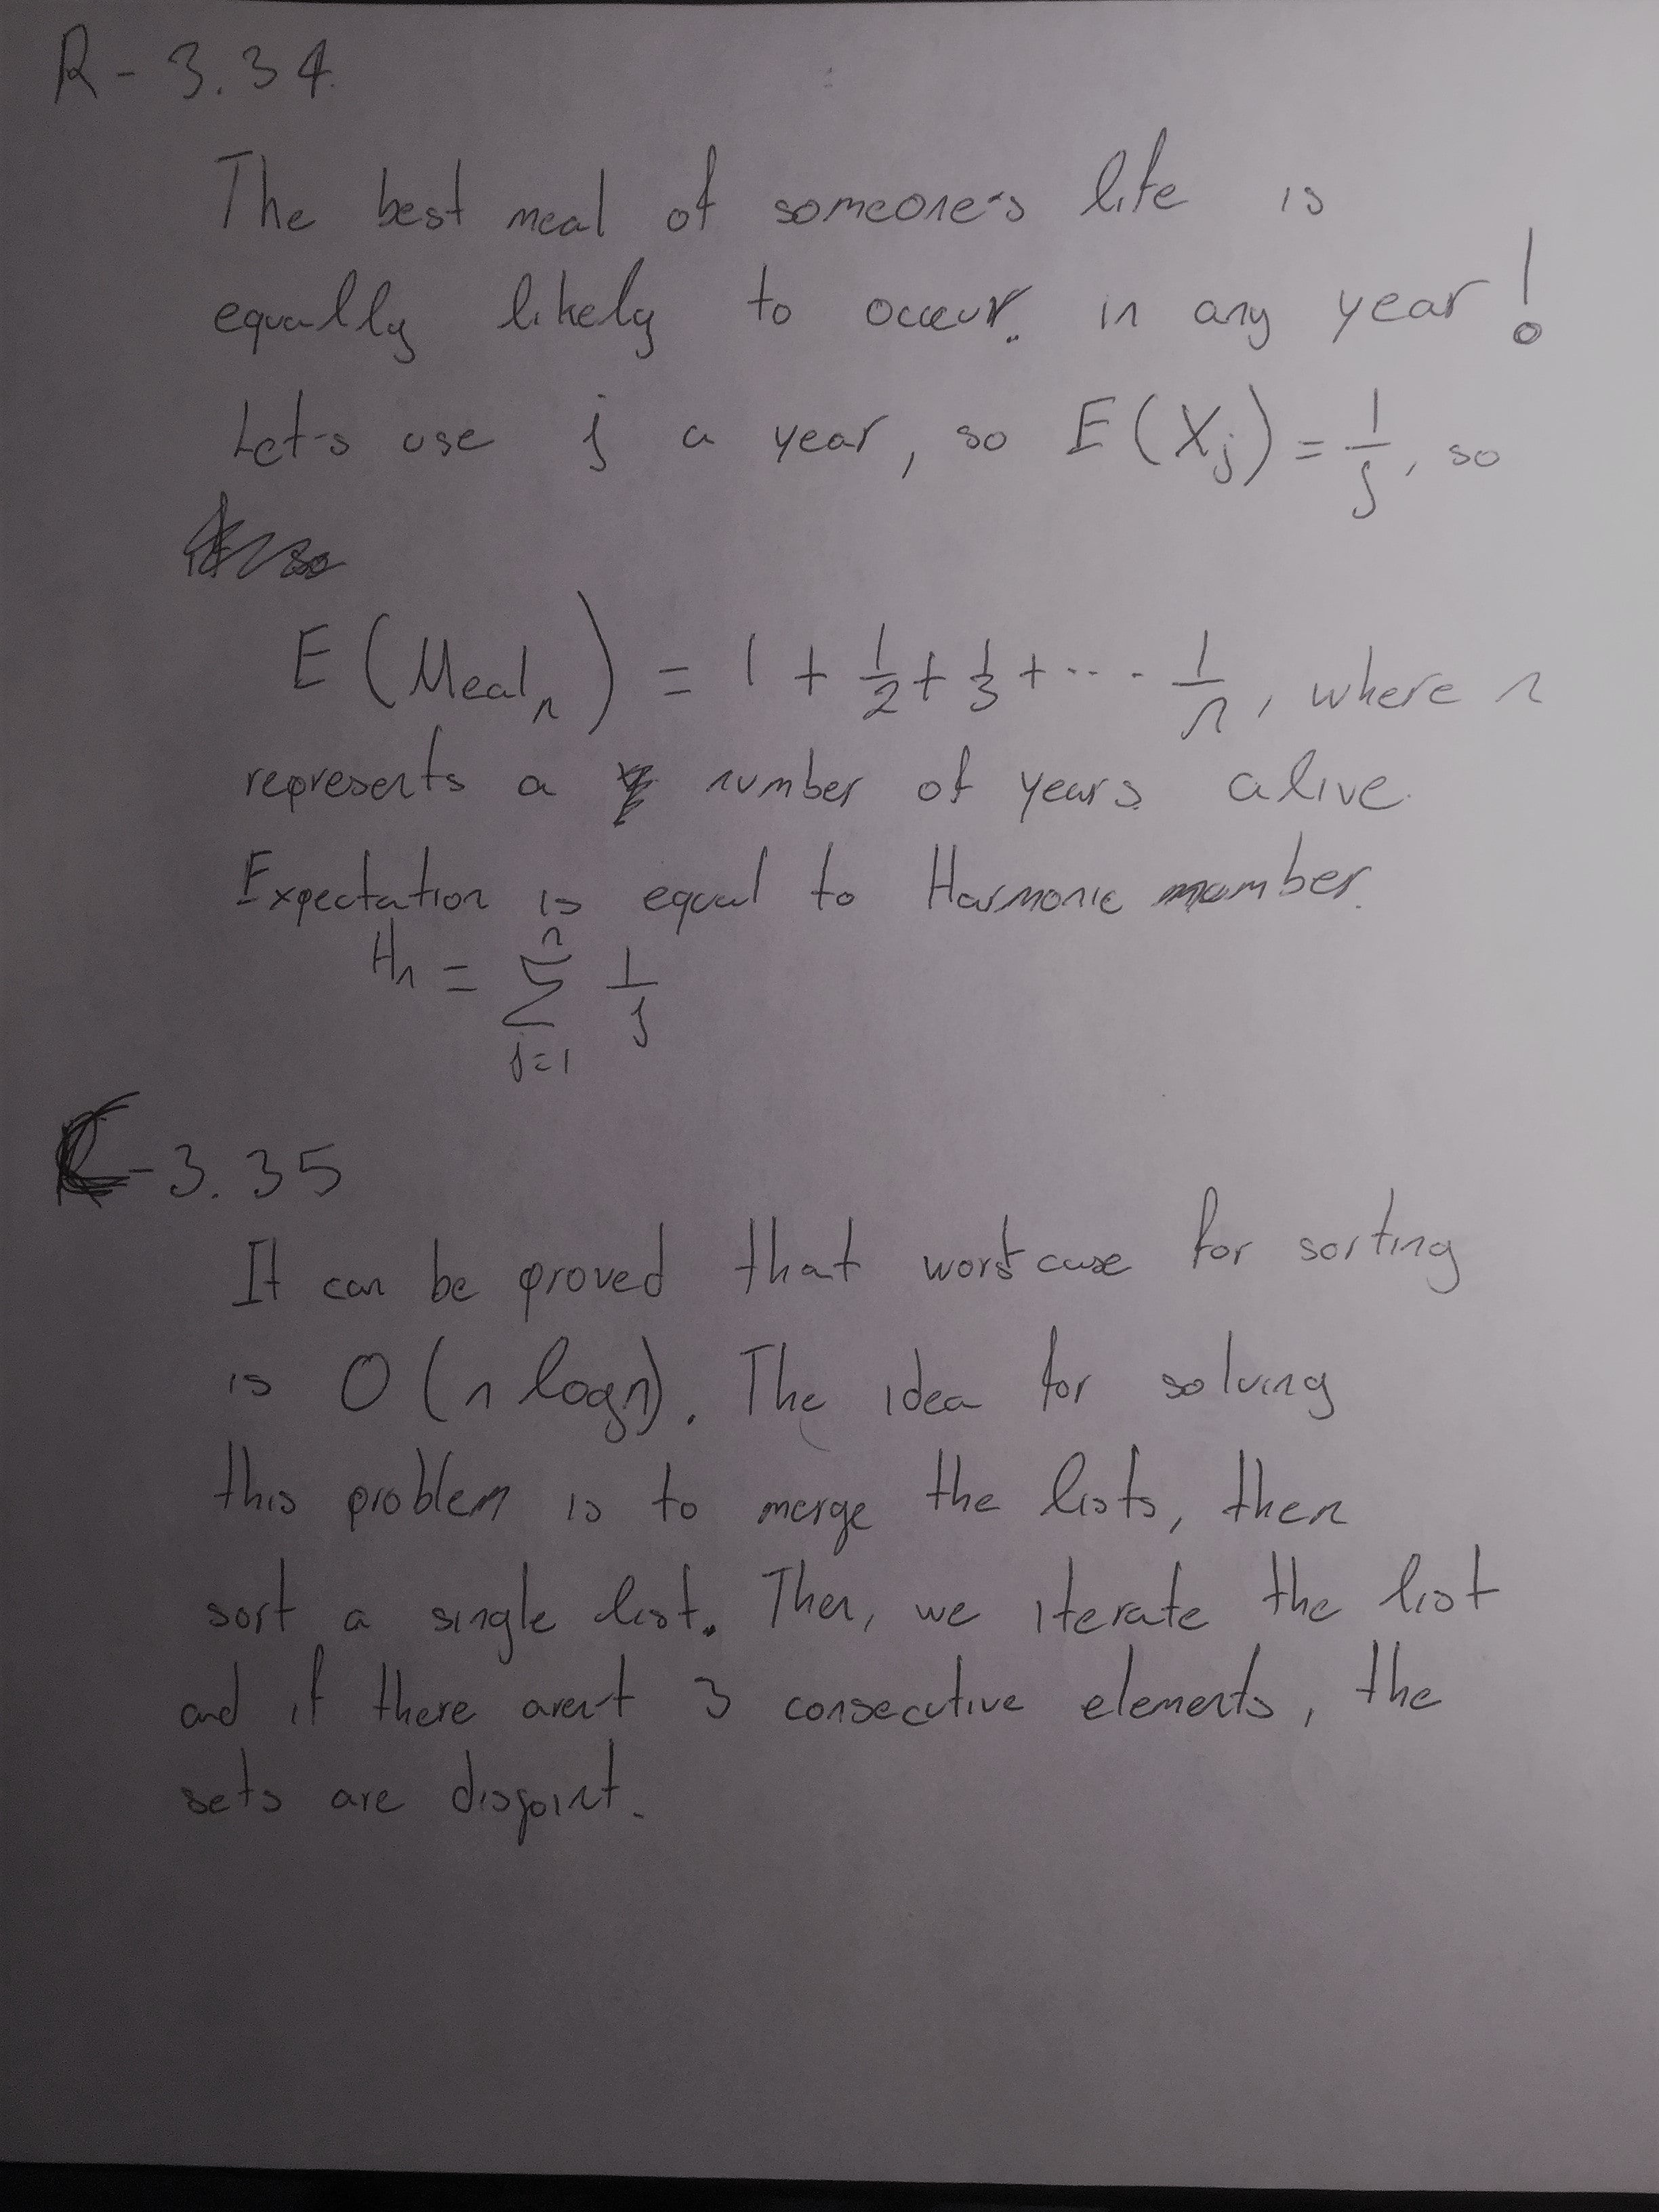 R-3.34
The best meal of someone's life is
equally likely to occur. in any year!
Let's use j a year, so E(Xj) = 1/j, so
E(Mealn) = 1 + 1/2 + 1/3 + ... 1/n, where n
represents a number of years alive.
Expectation is equal to Harmonic number.
Hn = Σ_{j=1}^{n} 1/j
C-3.35
It can be proved that worst case for sorting
is O(n logn). The idea for solving
this problem is to merge the lists, then
sort a single list. Then, we iterate the list
and if there aren't 3 consecutive elements, the
sets are disjoint.